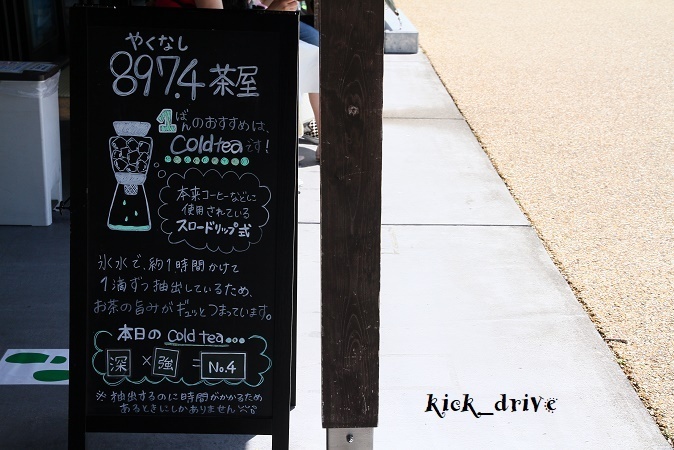 やくなし
897.4茶屋
1ばんのおすすめは、
Coldteaです!
本来コーヒーなどに
使用されている
スロードリップ式
氷水で、約1時間かけて
1滴ずつ抽出しているため、
お茶の旨みがギュッとつまっています。
本日の cold tea...
深 × 強 = No.4
※抽出するのに時間がかかるため
あるときにしかありません
kick_drive